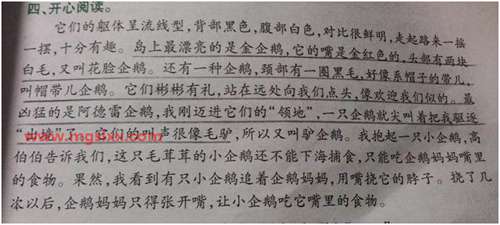 四、开心阅读。
它们的躯体呈流线型,背部黑色,腹部白色,对比很鲜明,走起路来一摇
一摆,十分有趣。岛上最漂亮的是金企鹅,它的嘴是金红色的,头部有两块
白毛,又叫花脸企鹅。还有一种企鹅,颈部有一圈黑毛,好像系帽子的带儿,
叫帽带儿企鹅。它们彬彬有礼,站在远处向我们点头,像欢迎我们似的。最
凶猛的是阿德雷企鹅,我刚迈进它们的“领地”,一只企鹅就尖叫着把我驱逐
“出境”了。它们的叫声很像毛驴,所以又叫驴企鹅。我抱起一只小企鹅,高
伯伯告诉我们,这只毛茸茸的小企鹅还不能下海捕食,只能吃企鹅妈妈嘴里
的食物。果然,我看到有只小企鹅追着企鹅妈妈,用嘴挠它的脖子。挠了几
次以后,企鹅妈妈只得张开嘴,让小企鹅吃它嘴里的食物。